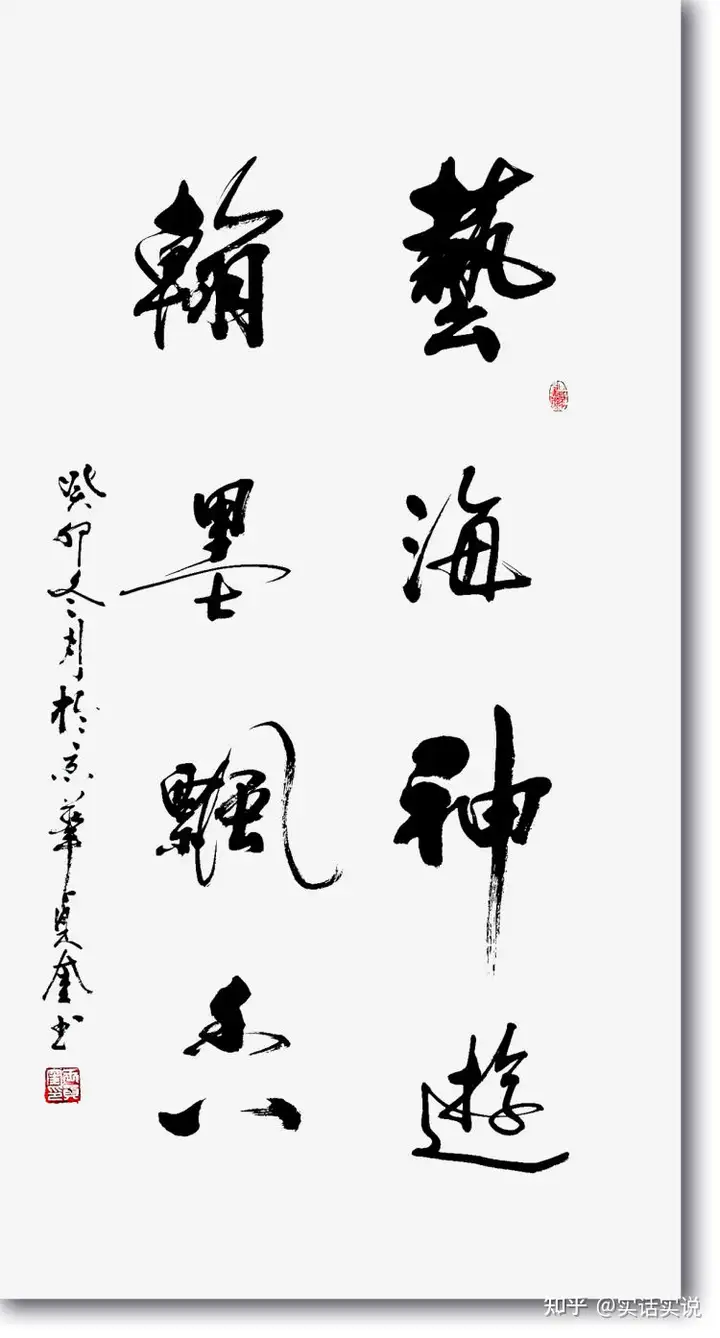 藝海神遊
翰墨飄香
癸卯冬月於京華貞奎书
知乎 @实话实说